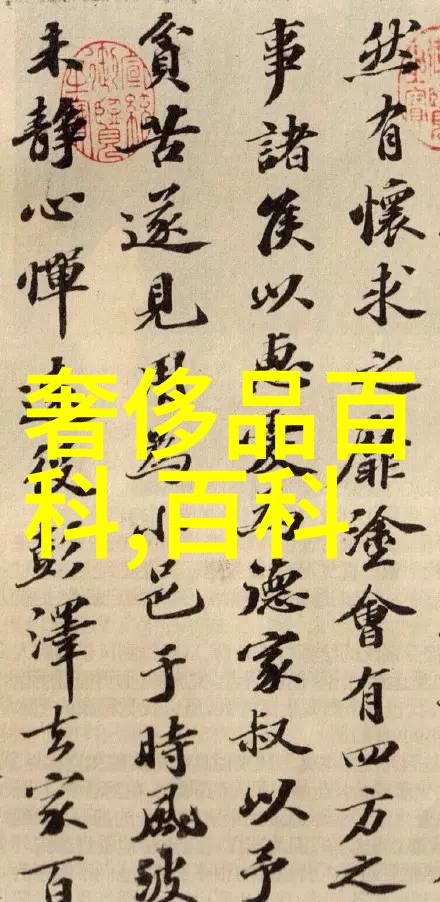 奢侈品百
科,百科
然有懷求之靡塗會有四方之
事諸侯以惠愛為德家叔以予
貧苦遂見用為小邑于時風波
未靜心憚遠役彭澤去家百